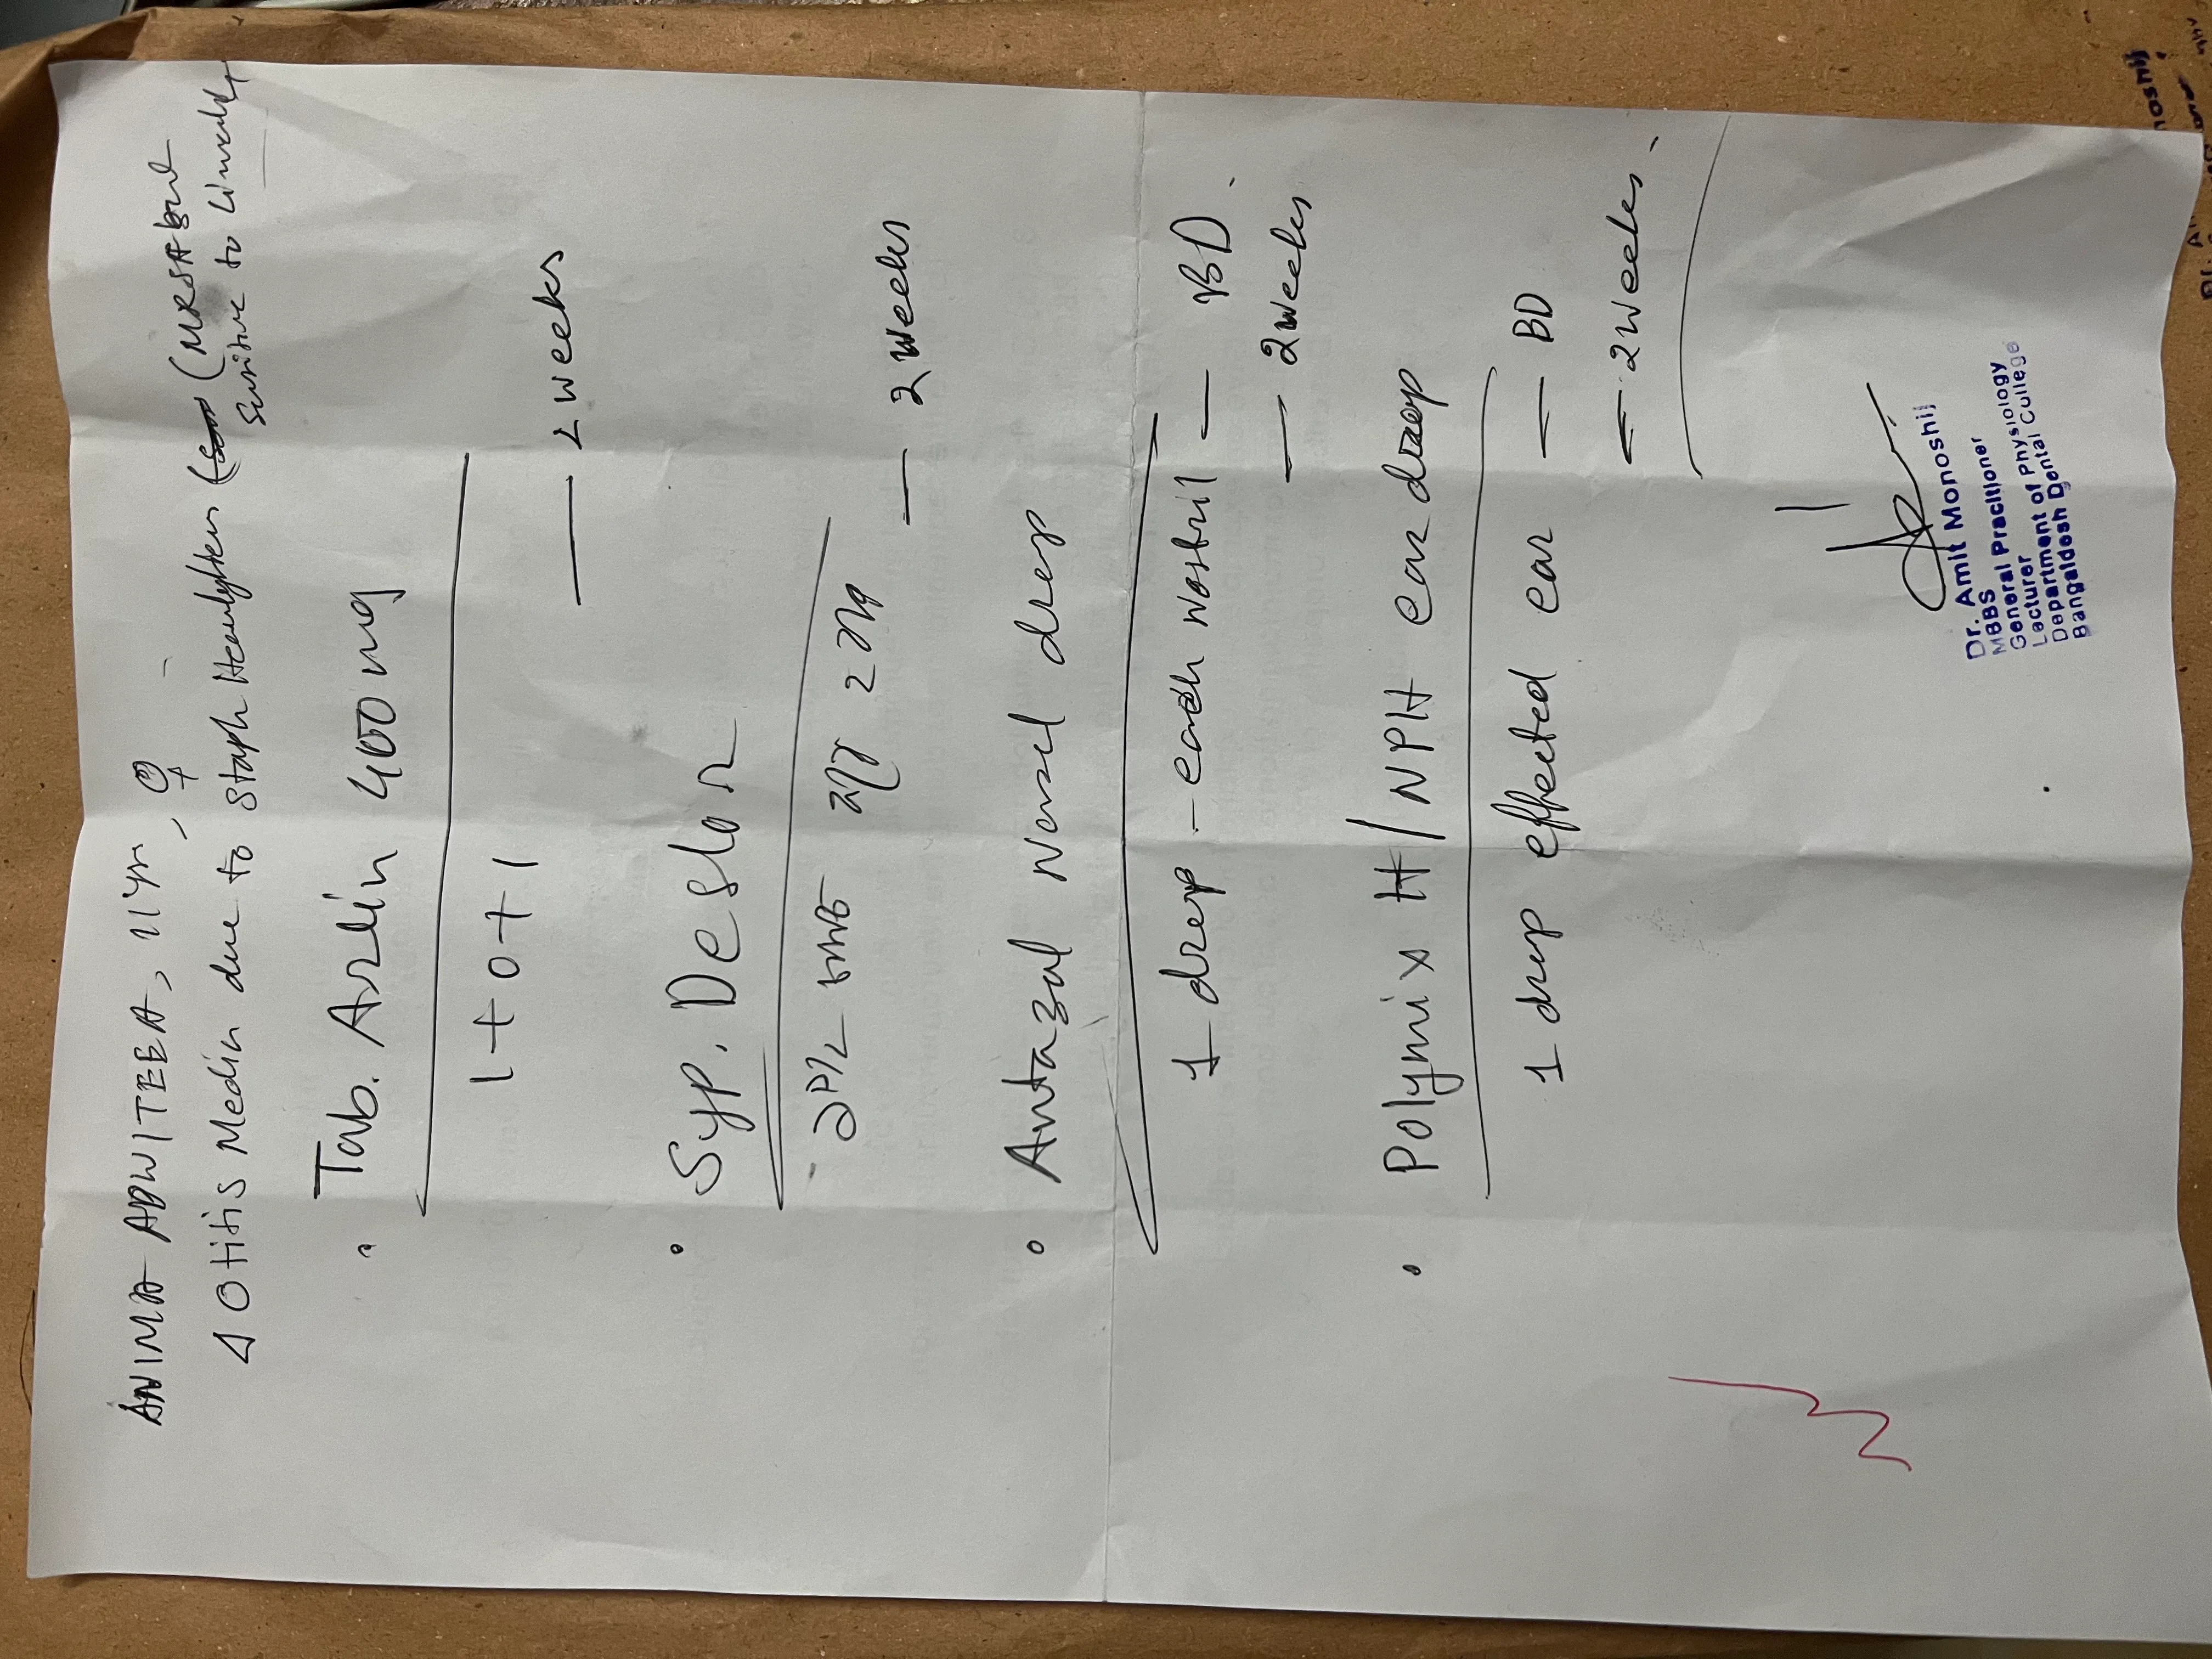 ANIMA ADWITEEA, 11yr, ♀
Δ Otitis Media due to Staph Hemolyticus (MRSA but
Sensitive to
• Tab. Arlin 400 mg
1+0+1
— 2 weeks
• Syp. Deslor
চামচ ২ বার
— 2 weeks
• Antazol Nasal drop
1 drop - each nostril — BD
— 2 weeks
• Polymix H/NPH ear drop
1 drop effected ear — BD
— 2 weeks.
Dr. Amit Monoshij
MBBS
General Practitioner
Lecturer
Department of Physiology
Bangaldesh Dental Cullege
noshij